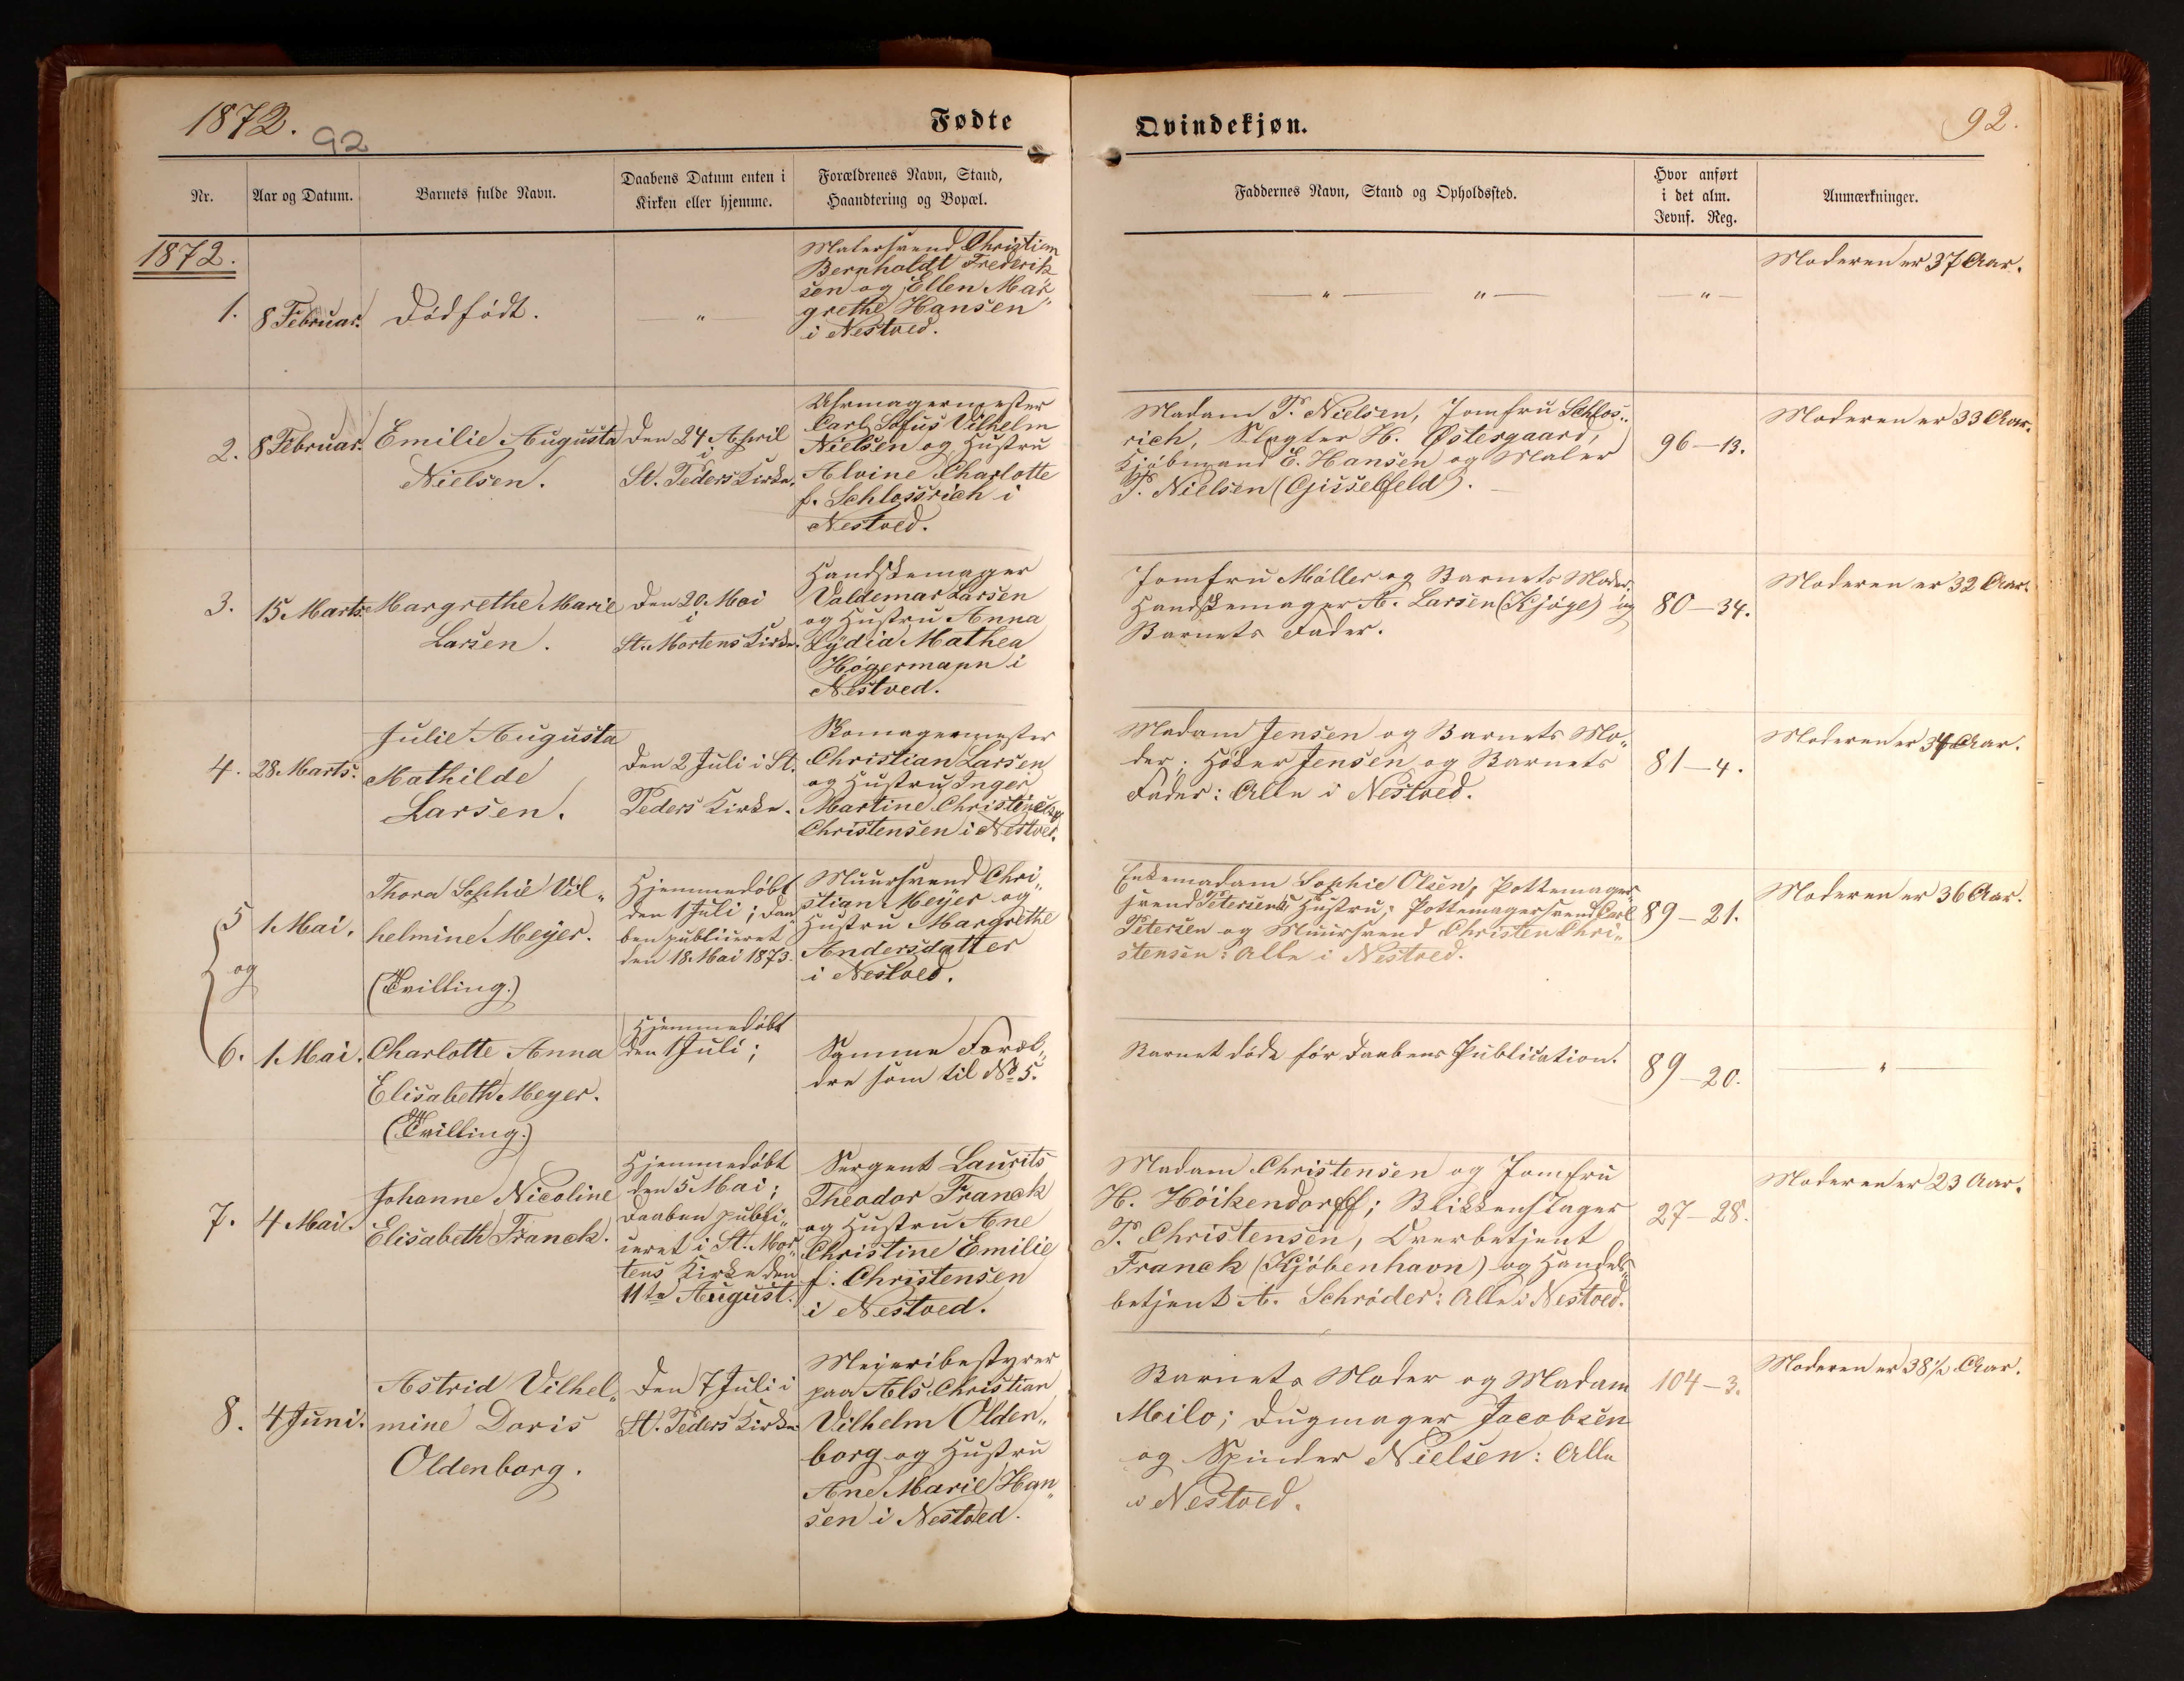 1872.
92
Fødte
Qvindekjøn.
92.
Nr.
Aar og Datum.
Barnets fulde Navn.
Daabens Datum enten i
Kirken eller hjemme.
Forældrenes Navn, Stand,
Haandtering og Bopæl.
Faddernes Navn, Stand og Opholdssted.
Hvor anført
i det alm.
Jevnf. Reg.
Anmærkninger.
1872.
1.
8 Februar.
Dødfødt.
"
Malersvend Christian
Bernholdt Frederik
sen og Ellen Mar„
grethe Hansen
i Nestved.
" "
"
Moderen er 37 Aar.
2.
8 Februar.
Emilie Augusta
Nielsen.
Den 24 April
i
St. Peders Kirke.
Uhrmagermester
Carl Sofus Vilhelm
Nielsen og Hustru
Alvine Charlotte
f. Schlossrich i
Nestved.
Madam P. Nielsen, Jomfru Schlos„
rich, Slagter H. Østergaard,
Kjøbmand E. Hansen og Maler
P. Nielsen (Gisselfeld).
96-13.
Moderen er 33 Aar.
3.
15 Marts.
Margrethe Marie
Larsen.
Den 20 Mai
i
St. Mortens Kirke.
Handskemager
Valdemar Larsen
og Hustru Anna
Lydia Mathea
Högermann i
Nestved.
Jomfru Möller og Barnets Moder,
Handskemager A. Larsen (Kjøge) og
Barnets Fader.
80-34.
Moderen er 32 Aar.
4.
28 Marts.
Julie Augusta
Mathilde
Larsen.
Den 2 Juli i St.
Peders Kirke.
Skomagermester
Christian Larsen
og Hustru Inger
Martine
Christensen i Nestved.
Madam Jensen og Barnets Mo„
der; Høker Jensen og Barnets
Fader: Alle i Nestved.
81-4.
Moderen er Aar.
5
og
1 Mai.
Thora Sophie Vil„
helmine Meyer.
(Tvilling.)
Hjemmedøbt
den 1 Juli; Daa„
ben publiceret
den 18. Mai 1873.
Muursvend Chri„
stian Meyer og
Hustru Margrethe
Andersdatter
i Nestved.
Enkemadam Sophie Olsen, Pottemager„
svend Petersens Hustru; Pottemagersvend Carl
Petersen og Muursvend Christen Chri„
stensen: Alle i Nestved.
89-21.
Moderen er 36 Aar.
6.
1 Mai.
Charlotte Anna
Elisabeth Meyer.
(Tvilling.)
Hjemmedøbt
den 1 Juli;
Samme Foræl„
dre som til No 5.
Barnet døde før Daabens Publication.
89-20.
"
7.
4 Mai.
Johanne Nicoline
Elisabeth Franck.
Hjemmedøbt
den 5 Mai;
Daaben publi„
ceret i St. Mor„
tens Kirke den
11te August.
Sergent Laurits
Theodor Franck
og Hustru Ane
Christine Emilie
f. Christensen
i Nestved.
Madam Christensen og Jomfru
H. Höikendorff; Blikkenslager
P. Christensen, Overbetjent
Franck (Kjöbenhavn) og Handels„
betjent A. Schröder: Alle i Nestved.
27-28.
Moderen er 23 Aar.
8.
4 Juni.
Astrid Vilhel„
mine Doris
Oldenborg.
Den 7 Juli i
St. Peders Kirke
Mejeribestyrer
paa Als Christian
Vilhelm Olden„
borg og Hustru
Ane Marie Han„
sen i Nestved.
Barnets Moder og Madam
Milo; Dugmager Jacobsen
og Spinder Nielsen: Alle
i Nestved.
104-3.
Moderen er 38½ Aar.